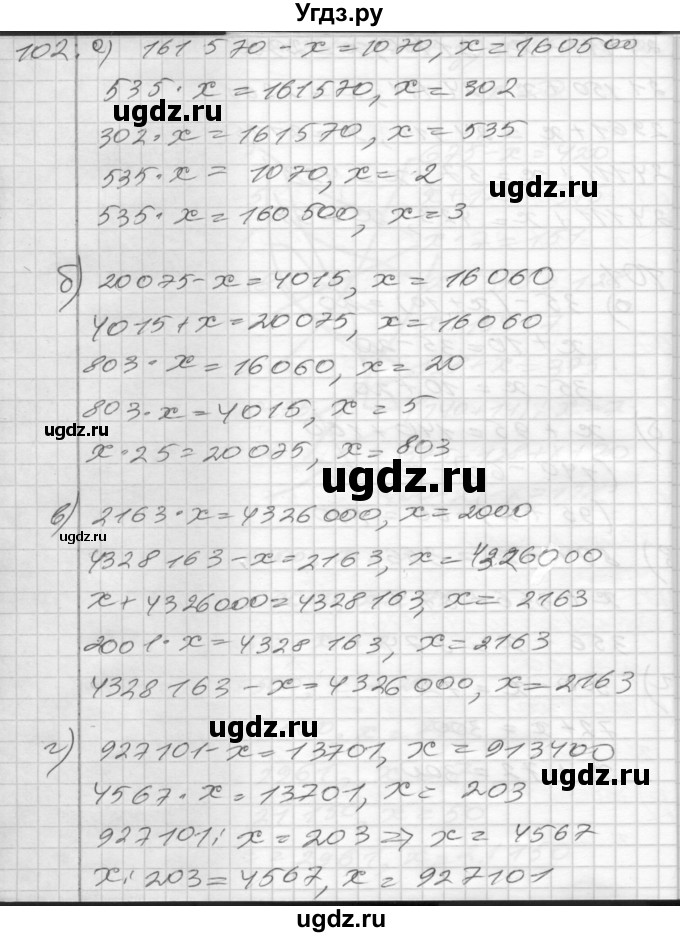 Угдз.ру
102. а) 161 570 - x = 1070, x = 160500
535 · x = 161570, x = 302
ugdz.ru
302 · x = 161570, x = 535
535 · x = 1070, x = 2
ugdz.ru
535 · x = 160 500, x = 3
б) 20075 - x = 4015, x = 16060
4015 + x = 20075, x = 16060
803 · x = 16060, x = 20
803 · x = 4015, x = 5
ugdz.ru
x · 25 = 20075, x = 803
ugdz.ru
в) 2163 · x = 4326000, x = 2000
4328 163 - x = 2163, x = 4326000
x + 4326000 = 4328 163, x = 2163
2001 · x = 4328 163, x = 2163
4328 163 - x = 4326 000, x = 2163
ugdz.ru
г) 927101 - x = 13701, x = 913400
ugdz.ru
4567 · x = 13701, x = 203
927101 : x = 203 => x = 4567
x : 203 = 4567, x = 927101
ugdz.ru
ugdz.ru